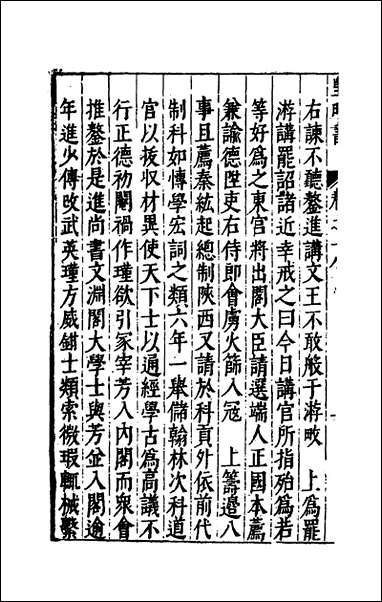 右諫不聽鏊進講文王不敢般于游畋　上爲罷
游講罷詔諸近幸戒之曰今日講官所指殆爲若
等好爲之東宮將出閣大臣請選端人正國本薦
兼諭德陞吏右侍郎會虜火篩入寇　上籌邊八
事且薦秦紘起總制陝西又請於科貢外依前代
制科如博學宏詞之類六年一舉儲翰林次科道
官以扳收材異使天下士以通經學古爲高議不
行正德初閹禍作瑾欲引冢宰芳入內閣而衆會
推鏊於是進尚書文淵閣大學士與芳並入閣逾
年進少傅攺武英瑾方威鉗士類索微瑕輒械繫